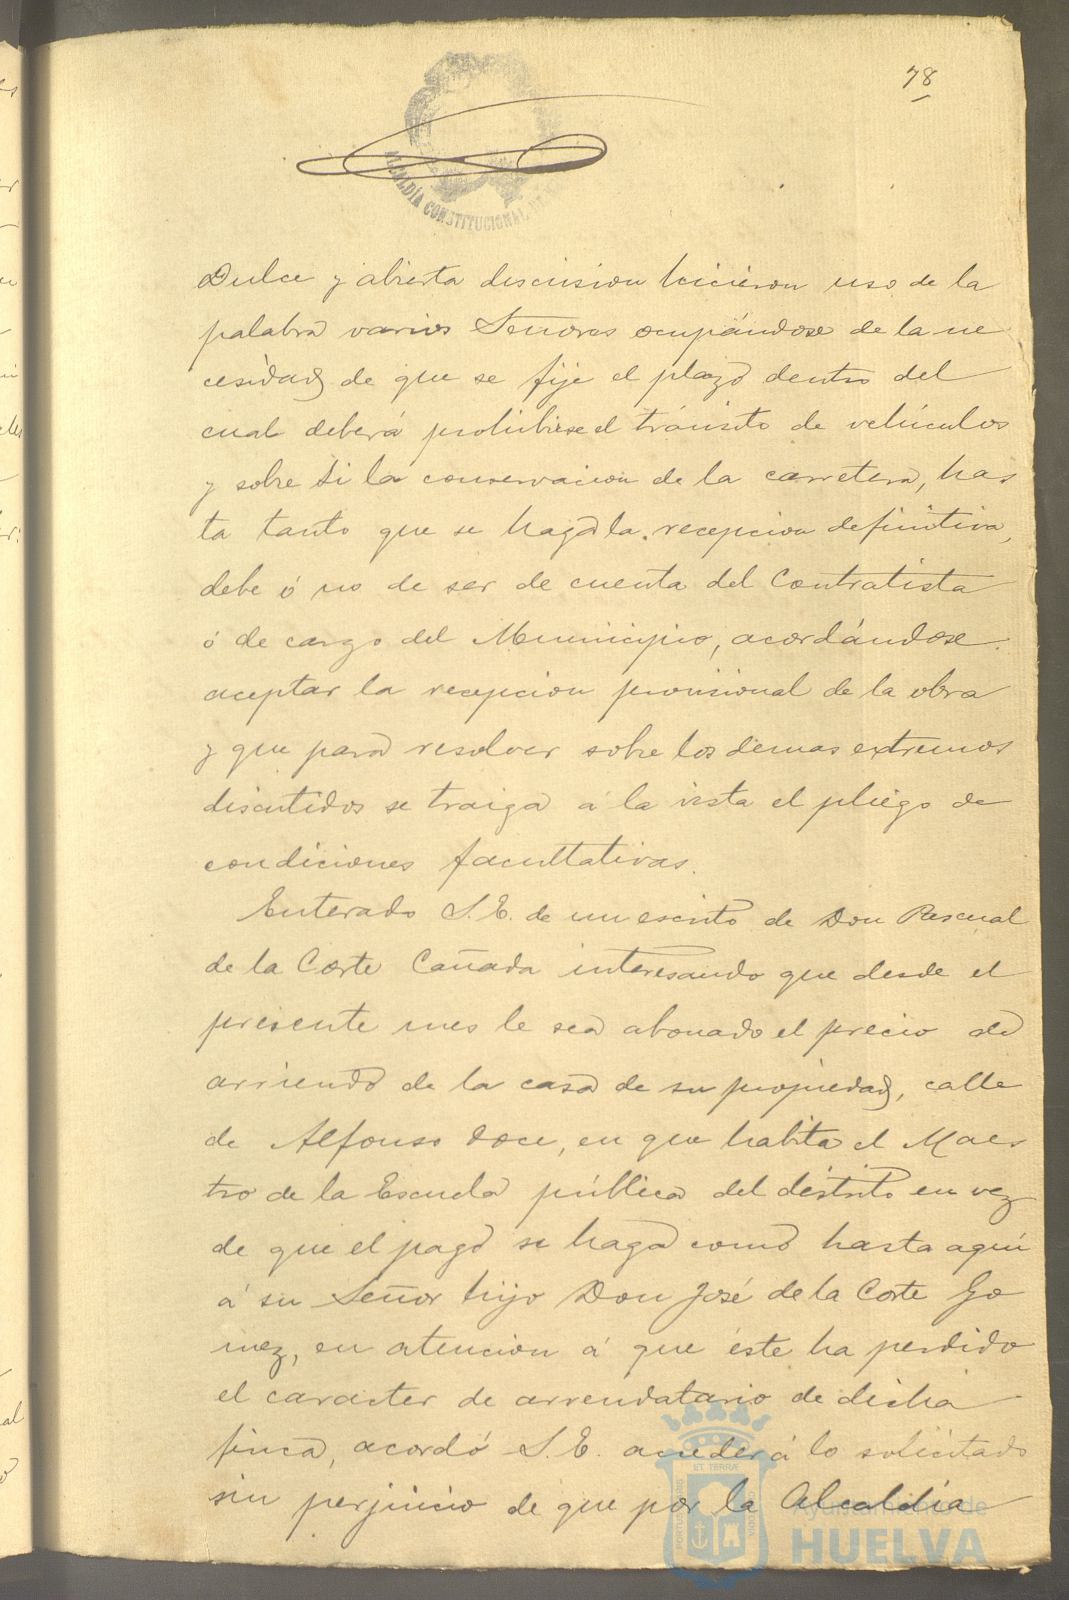 78
ALCALDÍA CONSTITUCIONAL
Dulce y abierta discusion hicieron uso de la
palabra varios Señores ocupándose de la ne
cesidad de que se fije el plazo dentro del
cual deberá prohibirse el tránsito de vehículos
y sobre si la conservacion de la carretera, has
ta tanto que se haga la recepcion definitiva,
debe ó no de ser de cuenta del Contratista
ó de cargo del Municipio, acordándose
aceptar la recepcion provisional de la obra
y que para resolver sobre los demas extremos
discutidos se traiga á la vista el pliego de
condiciones facultativas.
Enterado S.E. de un escrito de Don Pascual
de la Corte Cañada interesando que desde el
presente mes le sea abonado el precio de
arriendo de la casa de su propiedad, calle
de Alfonso doce, en que habita el Maes
tro de la Escuela pública del distrito en vez
de que el pago se haga como hasta aquí
á su Señor hijo Don José de la Corte Go
mez, en atencion á que éste ha perdido
el caracter de arrendatario de dicha
finca, acordó S.E. acceder á lo solicitado
sin perjuicio de que por la Alcaldía
Ayuntamiento de
HUELVA